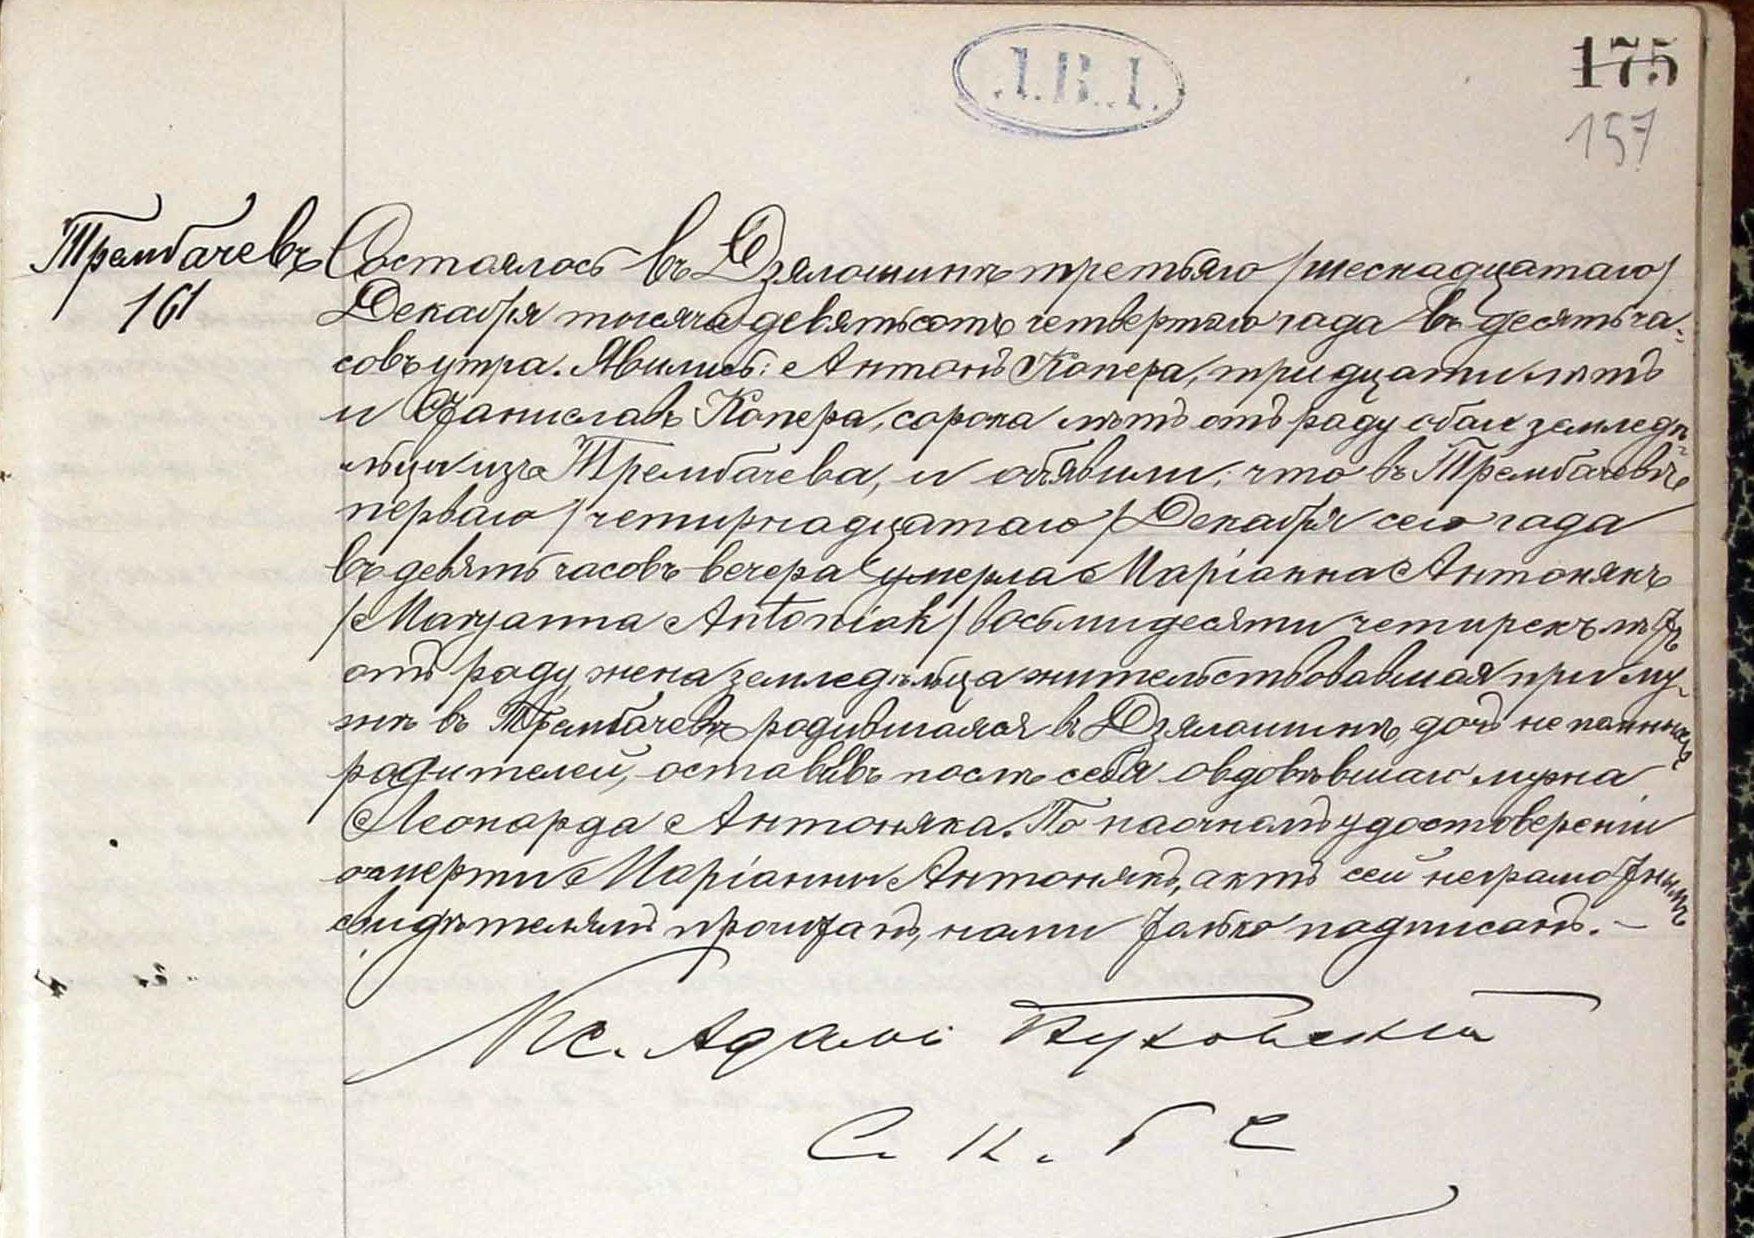 .I.B.I.
175
157
Трембачевъ
161
Состоялось въ Дзялошинѣ третьяго /шеснадцатаго/
Декабря тысяча девятьсотъ четвертаго года въ десять ча-
совъ утра. Явились: Антонъ Копера, тридцати лѣтъ
и Станиславъ Копера, сорока лѣтъ отъ роду обаи земледѣ-
льцы изъ Трембачева, и объявили, что въ Трембачевѣ
перваго /четырнадцатаго/ Декабря сего года
въ девять часовъ вечера умерла Маріанна Антонякъ
/Maryanna Antoniak/ восьмидесяти четырехъ лѣтъ
отъ роду, жена земледѣльца жительствовавшая при му-
жѣ въ Трембачевѣ родившаяся въ Дзялошинѣ, дочь непомнныхъ
родителей, оставивъ послѣ себя овдовѣвшаго мужа
Леонарда Антоняка. По наочномъ удостоверении
о смерти Маріанны Антонякъ, актъ сей неграмотнымъ
свидѣтелямъ прочитанъ, нами только подписанъ. —
Кс. Адамъ
С. Н. Г С